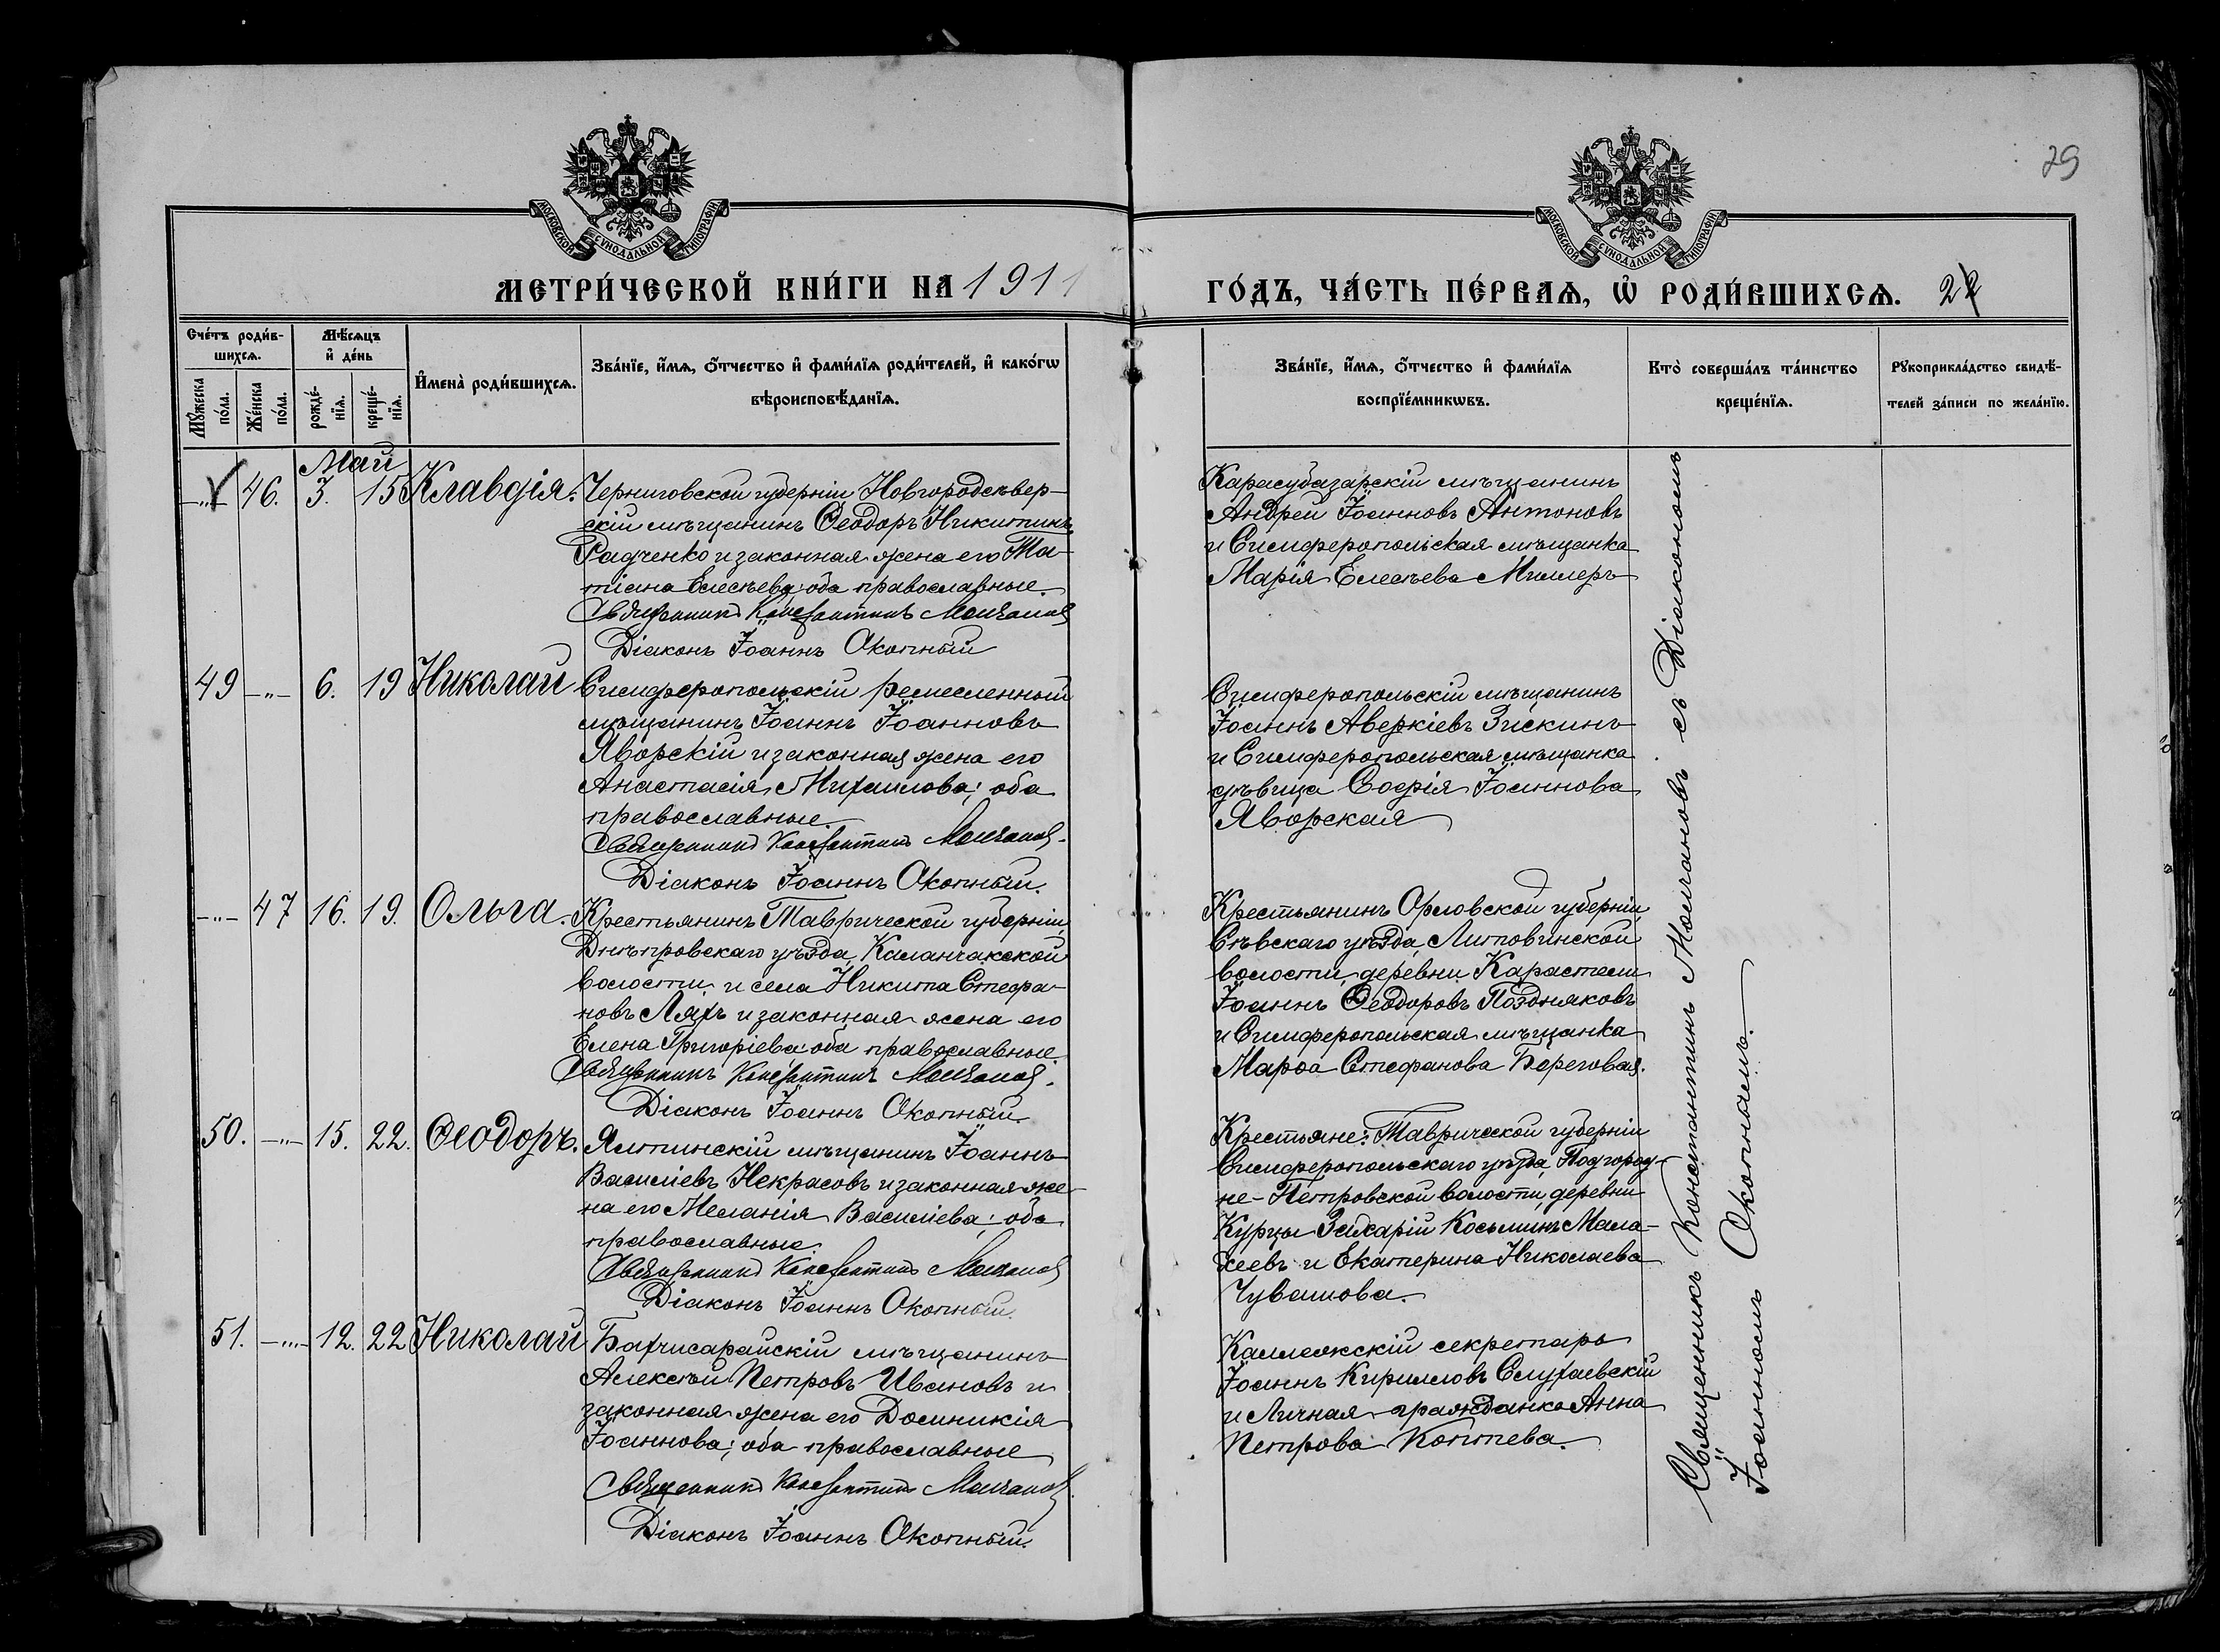 29
МОСКОВСКОЙ СѴНОДАЛЬНОЙ ТИПОГРАФІИ
МОСКОВСКОЙ СѴНОДАЛЬНОЙ ТИПОГРАФІИ
МЕТРИ́ЧЕСКОЙ КНИ́ГИ НА 1911
ГО́ДЪ, ЧА́СТЬ ПЕ́РВАѦ, Ѡ҆ РОДИ́ВШИХСѦ. 22
Сче́тъ роди́в-
шихсѧ.
Мѣ́сѧцъ
и҆ де́нь
Мꙋ́жеска
по́ла.
Же́нска
по́ла.
рожде́-
нїѧ.
креще́-
нїѧ.
И҆мена̀ роди́вшихсѧ.
Зва́нїе, и҆́мѧ, ѻ҆́тчество и҆ фами́лїѧ роди́телей, и҆ како́гѡ
вѣроисповѣ́данїѧ.
Зва́нїе, и҆́мѧ, ѻ҆́тчество и҆ фами́лїѧ
воспрїе́мникѡвъ.
Кто̀ соверша́лъ та́инство
креще́нїѧ.
Рꙋкоприкла́дство свидѣ́-
телей за́писи по жела́нїю.
Май
-"- 46. 3. 15 Клавдія.
Черниговской губерніи Новгородсѣвер-
скій мѣщанинъ Ѳеодоръ Никитинъ
Радченко и законная жена его Та-
тіана Елисѣева; оба православные.
Священникъ Константинъ Молчановъ
Діаконъ Іоаннъ Окопный
Карасубазарскій мѣщанинъ
Андрей Іоанновъ Антоновъ
и Симферопольская мѣщанка
Марія Елисѣева Миллеръ
49 -"- 6. 19 Николай
Симферопольскій ремесленный
мѣщанинъ Іоаннъ Іоанновъ
Яворскій и законная жена его
Анастасія Михаилова; оба
православные.
Священникъ Константинъ Молчановъ.
Діаконъ Іоаннъ Окопный.
Симферопольскій мѣщанинъ
Іоаннъ Аверкіевъ Зискинъ
и Симферопольская мѣщанка
дѣвица Софія Іоаннова
Яворская
-"- 47 16. 19. Ольга.
Крестьянинъ Таврической губерніи,
Днѣпровскаго уѣзда, Каланчакской
волости и села Никита Стефа-
новъ Ляхъ и законная жена его
Елена Григоріева; оба православные
Священникъ Константинъ Молчановъ.
Діаконъ Іоаннъ Окопный.
Крестьянинъ Орловской губерніи,
Сѣвскаго уѣзда, Литовинской
волости, деревни
Іоаннъ Ѳеодоровъ Поздняковъ
и Симферопольская мѣщанка
Марѳа Стефанова Береговая.
50. -"- 15. 22. Ѳеодоръ.
Ялтинскій мѣщанинъ Іоаннъ
Василіевъ Некрасовъ и законная же-
на его Меланія Василіева; оба
православные.
Священникъ Константинъ Молчановъ
Діаконъ Іоаннъ Окопный.
Крестьяне: Таврической губерніи
Симферопольскаго уѣзда, Подгород-
не-Петровской волости, деревни
Курцы Захарій Косьминъ Мала-
хеевъ и Екатерина Николаева
Чувашова.
51. -"- 12. 22 Николай
Бахчисарайскій мѣщанинъ
Алексѣй Петровъ Ивановъ и
законная жена его Домникія
Іоаннова; оба православные
Священникъ Константинъ Молчановъ.
Діаконъ Іоаннъ Окопный.
секретарь
Іоаннъ Кирилловъ Слухаевскій
и Личная гражданка Анна
Петрова Коптева.
Священникъ Константинъ Молчановъ съ Діакономъ
Іоанномъ Окопнымъ.